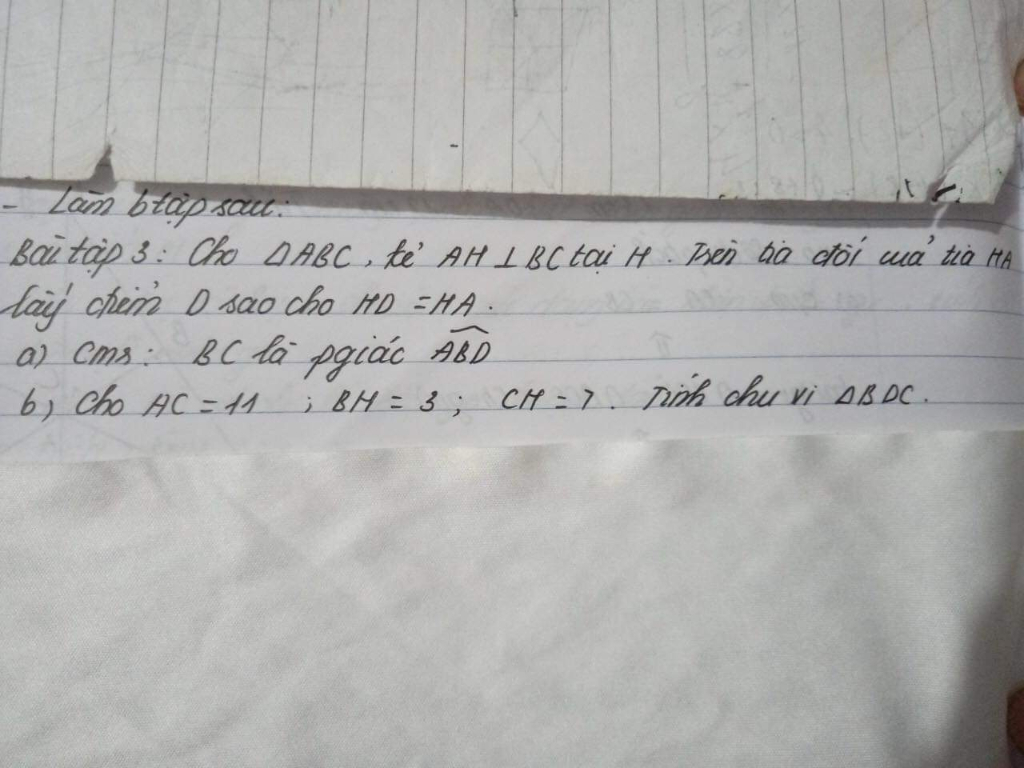 - Làm btập sau:
Bài tập 3: Cho ΔABC, kẻ AH ⊥ BC tại H. Trên tia đối của tia HA
lấy điểm D sao cho HD = HA.
a) Cmr: BC là pgiác \widehat{ABD}
b) Cho AC = 11 ; BH = 3 ; CH = 7. Tính chu vi ΔBDC.